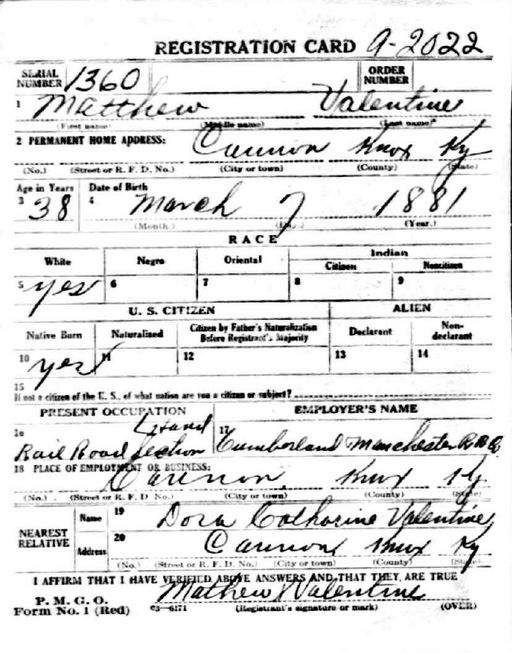 REGISTRATION CARD A-2022
SERIAL NUMBER 1360 ORDER NUMBER
1 Matthew Valentine
(First name) (Middle name) (Last name)
2 PERMANENT HOME ADDRESS: Cannon Knox Ky
(No.) (Street or R. F. D. No.) (City or town) (County) (State)
Age in Years Date of Birth
3 38 4 March 7 1881
(Month.) (Day.) (Year.)
RACE
White Negro Oriental Indian
Citizen Noncitizen
5 yes 6 7 8 9
U. S. CITIZEN ALIEN
Native Born Naturalized Citizen by Father's Naturalization Before Registrant's Majority Declarant Non-declarant
10 yes 11 12 13 14
15
If not a citizen of the U. S., of what nation are you a citizen or subject?
PRESENT OCCUPATION EMPLOYER'S NAME
16 Rail Road Section 17 Cumberland Manchester R.R.
18 PLACE OF EMPLOYMENT OR BUSINESS:
Cannon Knox Ky
(No.) (Street or R. F. D. No.) (City or town) (County) (State)
NEAREST RELATIVE Name 19 Dora Catharine Valentine
Address 20 Cannon Knox Ky
(No.) (Street or R. F. D. No.) (City or town) (County) (State)
I AFFIRM THAT I HAVE VERIFIED ABOVE ANSWERS AND THAT THEY ARE TRUE
P. M. G. O. Mathew Valentine
Form No. 1 (Red) 03-6171 (Registrant's signature or mark) (OVER)